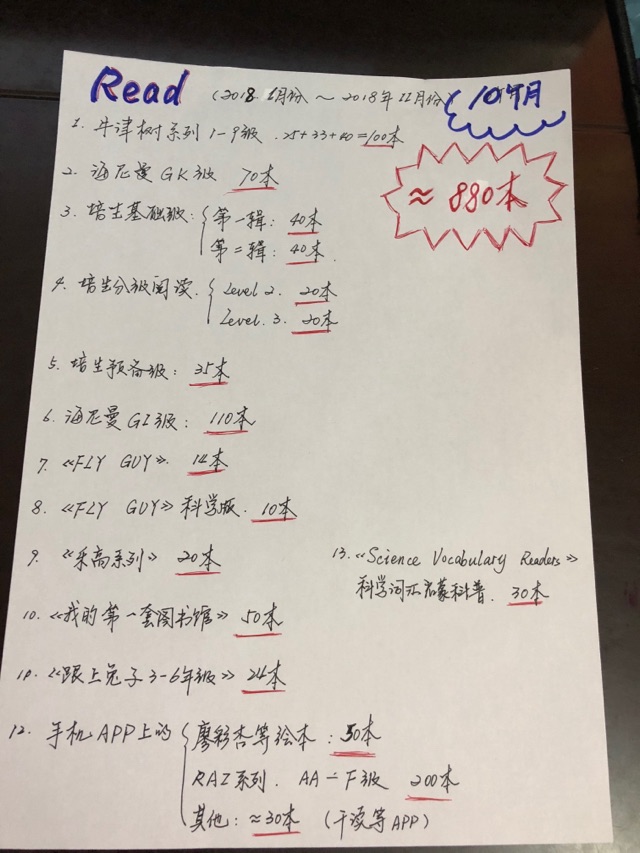 Read (2018.1月份～2018年11月份) 10个月
≈880本
1. 牛津树系列1-9级. 25+33+40=100本
2. 海尼曼GK级 70本
3. 培生基础级: 第一辑: 40本
第二辑: 40本.
4. 培生分级阅读. Level 2. 20本
Level. 3. 20本
5. 培生预备级: 35本
6. 海尼曼G1级: 110本
7. 《FLY GUY》. 14本
8. 《FLY GUY》科学版. 10本
9. 《乐高系列》20本
13. 《Science Vocabulary Readers》
科学词汇启蒙科普. 30本
10. 《我的第一套图书馆》50本
11. 《跟上兔子3-6年级》24本
12. 手机APP上的 廖彩杏等绘本: 50本
RAZ系列. AA-F级 200本
其他: ≈30本 (干读等APP)